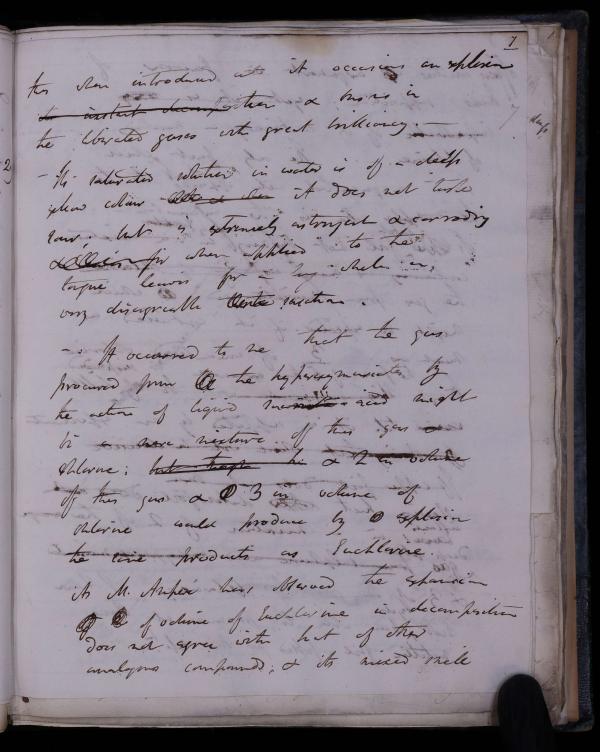 7
this when introduced into it occasions an explosion
the instant decomposition & burns in
the liberated gases with great brilliancy. —
– Its saturated solution in water is of a deep
yellow colour it does not taste
sour; but is extremely astringent & corroding
& for when applied to the
tongue leaves for a long while a
very disagreeable sensation.
– It occurred to me that the gas
procured from the hyperoxymuriate by
the action of liquid muriatic acid might
be a mere mixture of this gas &
chlorine; & 2 in volume
of this gas & 3 in volume of
chlorine would produce by explosion
the same products as Euchlorine.
As M. Ampere has observed the expansion
of volume of Euchlorine in decomposition
does not agree with that of other
analogous compounds; & its mixed smell